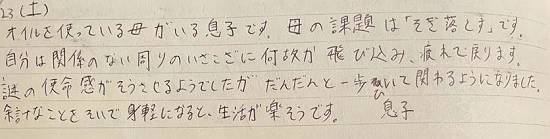 23(土)
オイルを使っている母がいる息子です。母の課題は「そぎ落とす」です。
自分は関係のない周りのいざこざに何故か飛び込み、疲れて戻ります。
謎の使命感がそうさせるようでしたがだんだんと一歩ひいて関わるようになりました。
余計なことをそいで身軽になると、生活が楽そうです。 息子